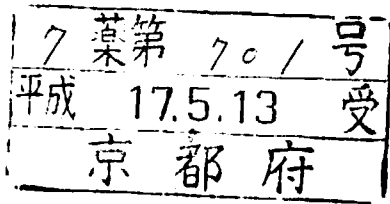 7薬第701号
平成 17.5.13 受
京都府